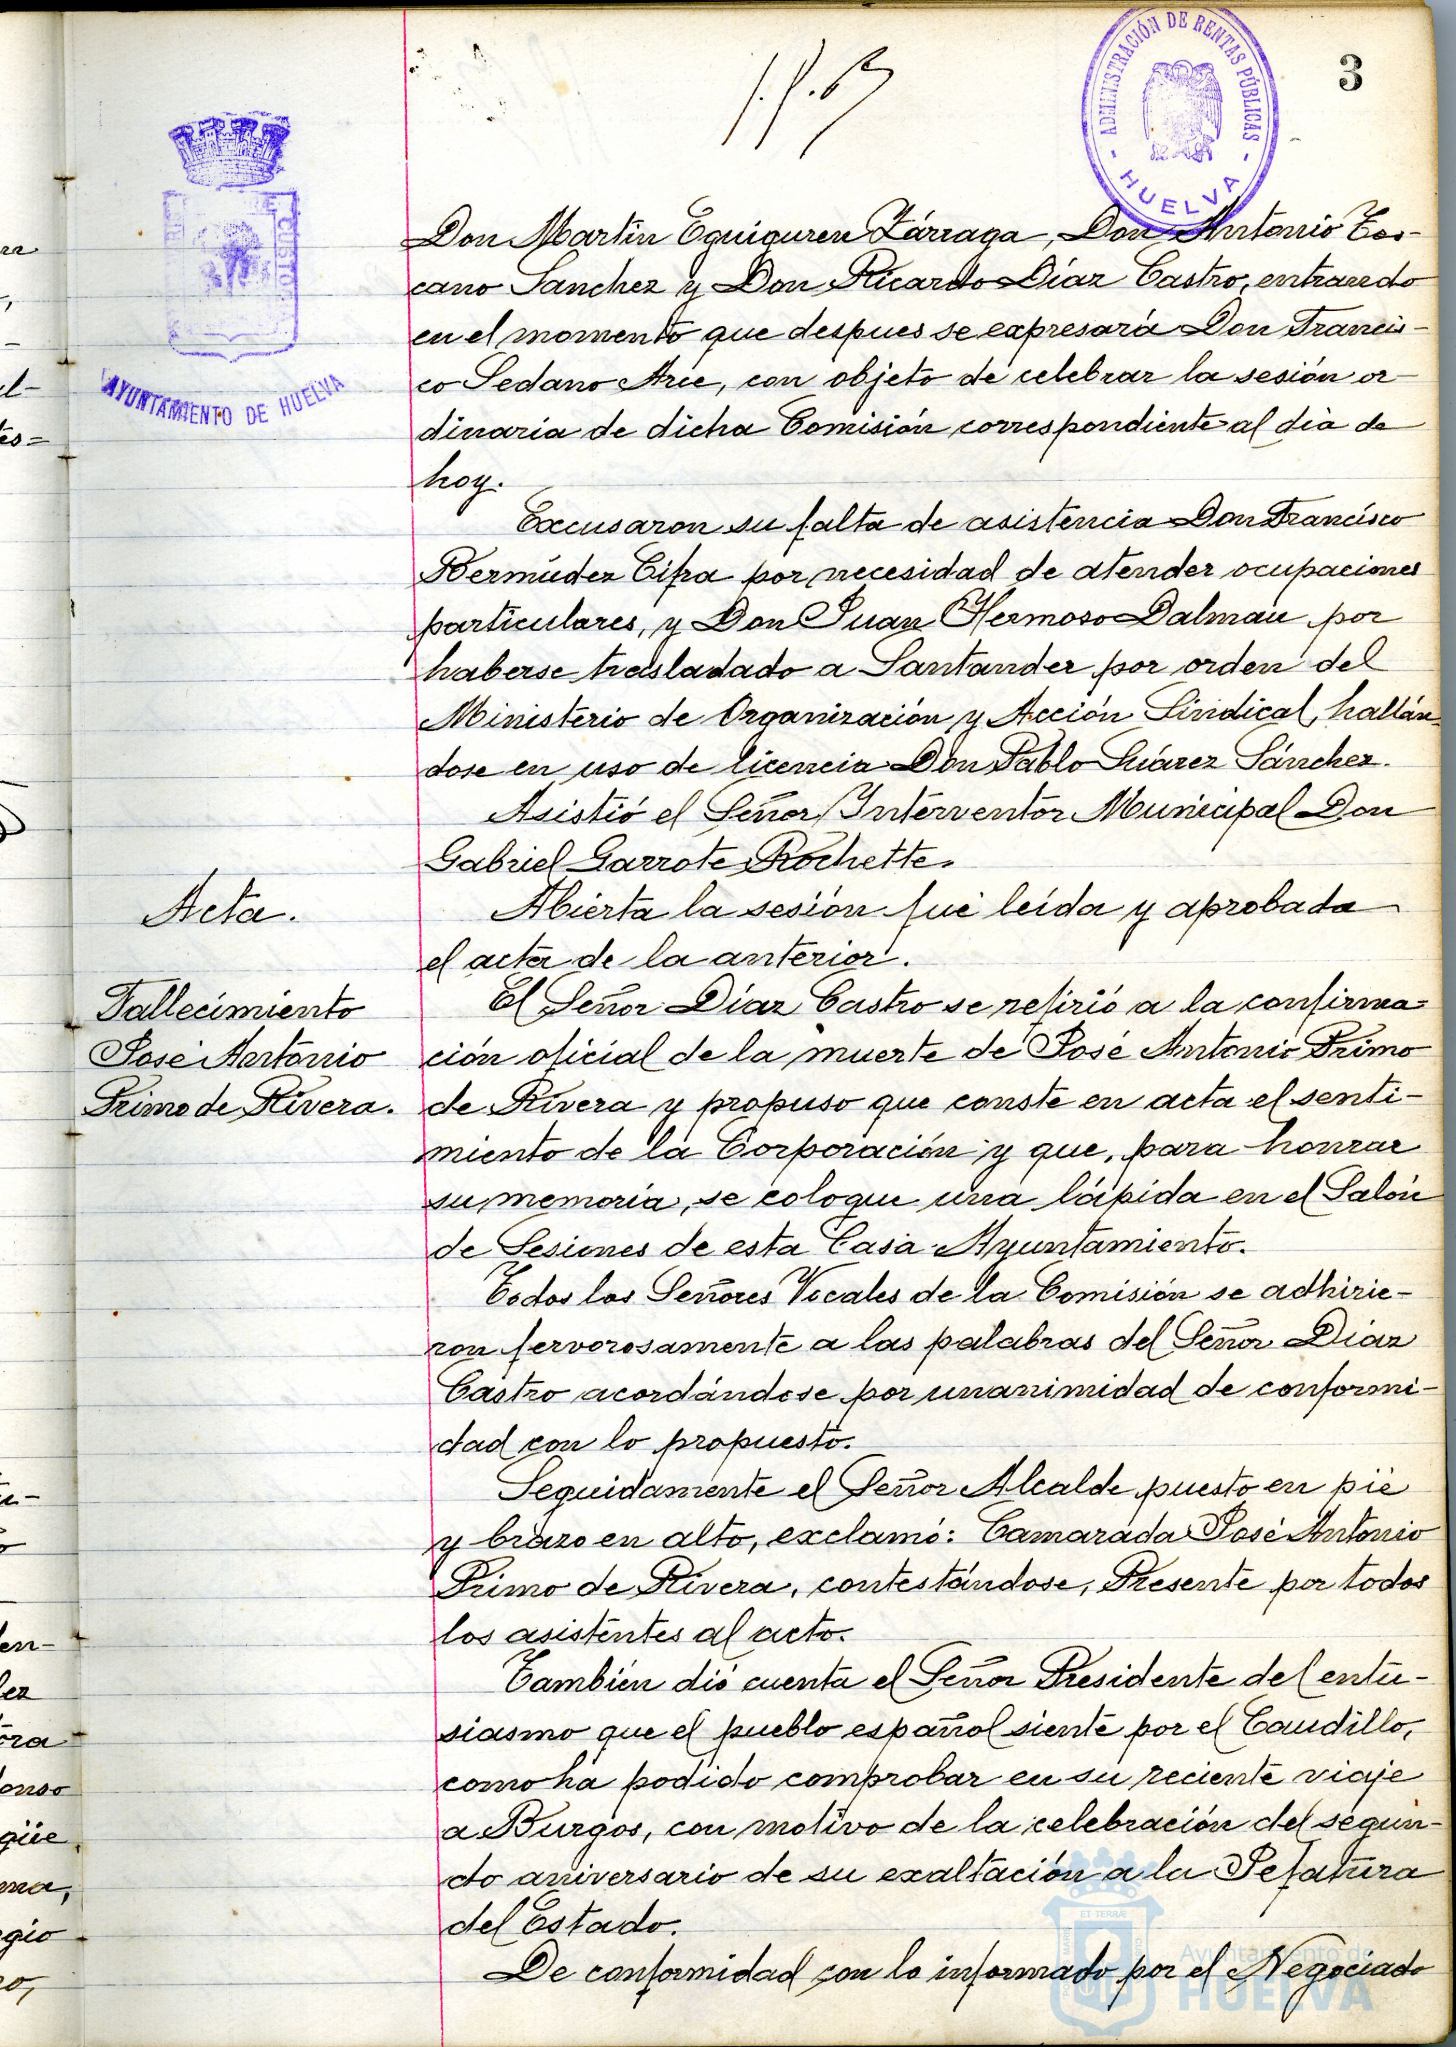 3
ADMINISTRACIÓN DE RENTAS PÚBLICAS
- HUELVA -
AYUNTAMIENTO DE HUELVA
Don Martín Eguiguren Zárraga, Don Antonio Tos-
cano Sanchez y Don Ricardo Díaz Castro, entrando
en el momento que despues se expresará Don Francis-
co Sedano Arce, con objeto de celebrar la sesión or-
dinaria de dicha Comisión correspondiente al día de
hoy.
Excusaron su falta de asistencia Don Francisco
Bermúdez Cifra por necesidad de atender ocupaciones
particulares, y Don Juan Hermoso Dalmau por
haberse trasladado a Santander por orden del
Ministerio de Organización y Acción Sindical, hallán-
dose en uso de licencia Don Pablo Suárez Sánchez.
Asistió el Señor Interventor Municipal Don
Gabriel Garrote Rochette.
Acta.
Abierta la sesión fué leída y aprobada
el acta de la anterior.
Fallecimiento
José Antonio
Primo de Rivera.
El Señor Díaz Castro se refirió a la confirma=
ción oficial de la muerte de José Antonio Primo
de Rivera y propuso que conste en acta el senti-
miento de la Corporación y que, para honrar
su memoria, se coloque una lápida en el Salón
de Sesiones de esta Casa Ayuntamiento.
Todos los Señores Vocales de la Comisión se adhirie-
ron fervorosamente a las palabras del Señor Díaz
Castro acordándose por unanimidad de conformi-
dad con lo propuesto.
Seguidamente el Señor Alcalde puesto en pié
y brazo en alto, exclamó: Camarada José Antonio
Primo de Rivera, contestándose, Presente por todos
los asistentes al acto.
También dió cuenta el Señor Presidente del entu-
siasmo que el pueblo español siente por el Caudillo,
como ha podido comprobar en su reciente viaje
a Burgos, con motivo de la celebración del segun-
do aniversario de su exaltación a la Jefatura
del Estado.
De conformidad con lo informado por el Negociado
Ayuntamiento de
HUELVA